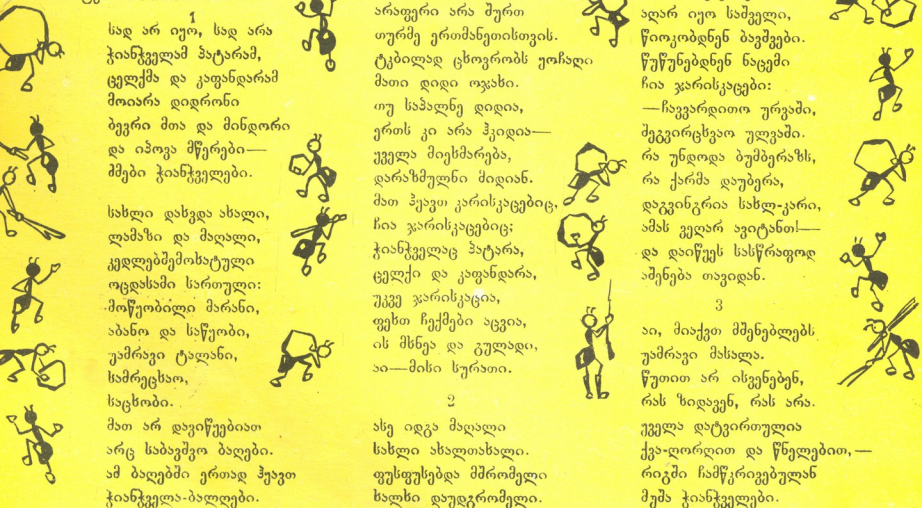 1
სად არ იყო, სად არა
ჭიანჭველამ პატარამ,
ცელქმა და კაფანდარამ
მოიარა დიდრონი
ბევრი მთა და მინდორი
და იპოვა მწერები—
ძმები ჭიანჭველები.
სახლი დახვდა ახალი,
ლამაზი და მაღალი,
კედლებშემოხატული
ოცდასამი სართული:
მოწყობილი მარანი,
აბანო და საწყობი,
უამრავი ტალანი,
სამრეცხაო,
საცხობი.
მათ არ დავიწყებიათ
არც საბავშვო ბაღები.
ამ ბაღებში ერთად ჰყავთ
ჭიანჭველა-ბალღები.
არაფერი არა შურთ
თურმე ერთმანეთისთვის.
ტკბილად ცხოვრობს უოჩაღი
მათი დიდი ოჯახი.
თუ საპალნე დიდია,
ერთს კი არა ჰკიდია—
ყველა მიეხმარება,
დარაზმულნი მიდიან.
მათ ჰყავთ კარისკაცებიც,
ჩია ჯარისკაცებიც;
ჭიანჭველაც პატარა,
ცელქი და კაფანდარა,
უკვე ჯარისკაცია,
ფეხთ ჩექმები აცვია,
ის მხნეა და გულადი,
აი—მისი სურათი.
2
ასე იდგა მაღალი
სახლი ახალთახალი.
ფუსფუსებდა მშრომელი
ხალხი დაუდგრომელი.
აღარ იყო საშველი,
წიოკობდნენ ბავშვები.
წუწუნებდნენ ნაცემი
ჩია ჯარისკაცები:
—ჩავვარდითო ურვაში,
შეგვირცხვაო ულვაში.
რა უნდოდა ბუმბერაზს,
რა ქარმა დაუბერა,
დაგვინგრია სახლ-კარი,
ამას ვეღარ ავიტანთ!—
და დაიწყეს სასწრაფოდ
აშენება თავიდან.
3
აი, მიაქვთ მშენებლებს
უამრავი მასალა.
წუთით არ ისვენებენ,
რას ზიდავენ, რას არა.
ყველა დატვირთულია
ქვა-ღორღით და წნელებით,—
რიგში ჩამწკრივებულან
მუშა ჭიანჭველები.